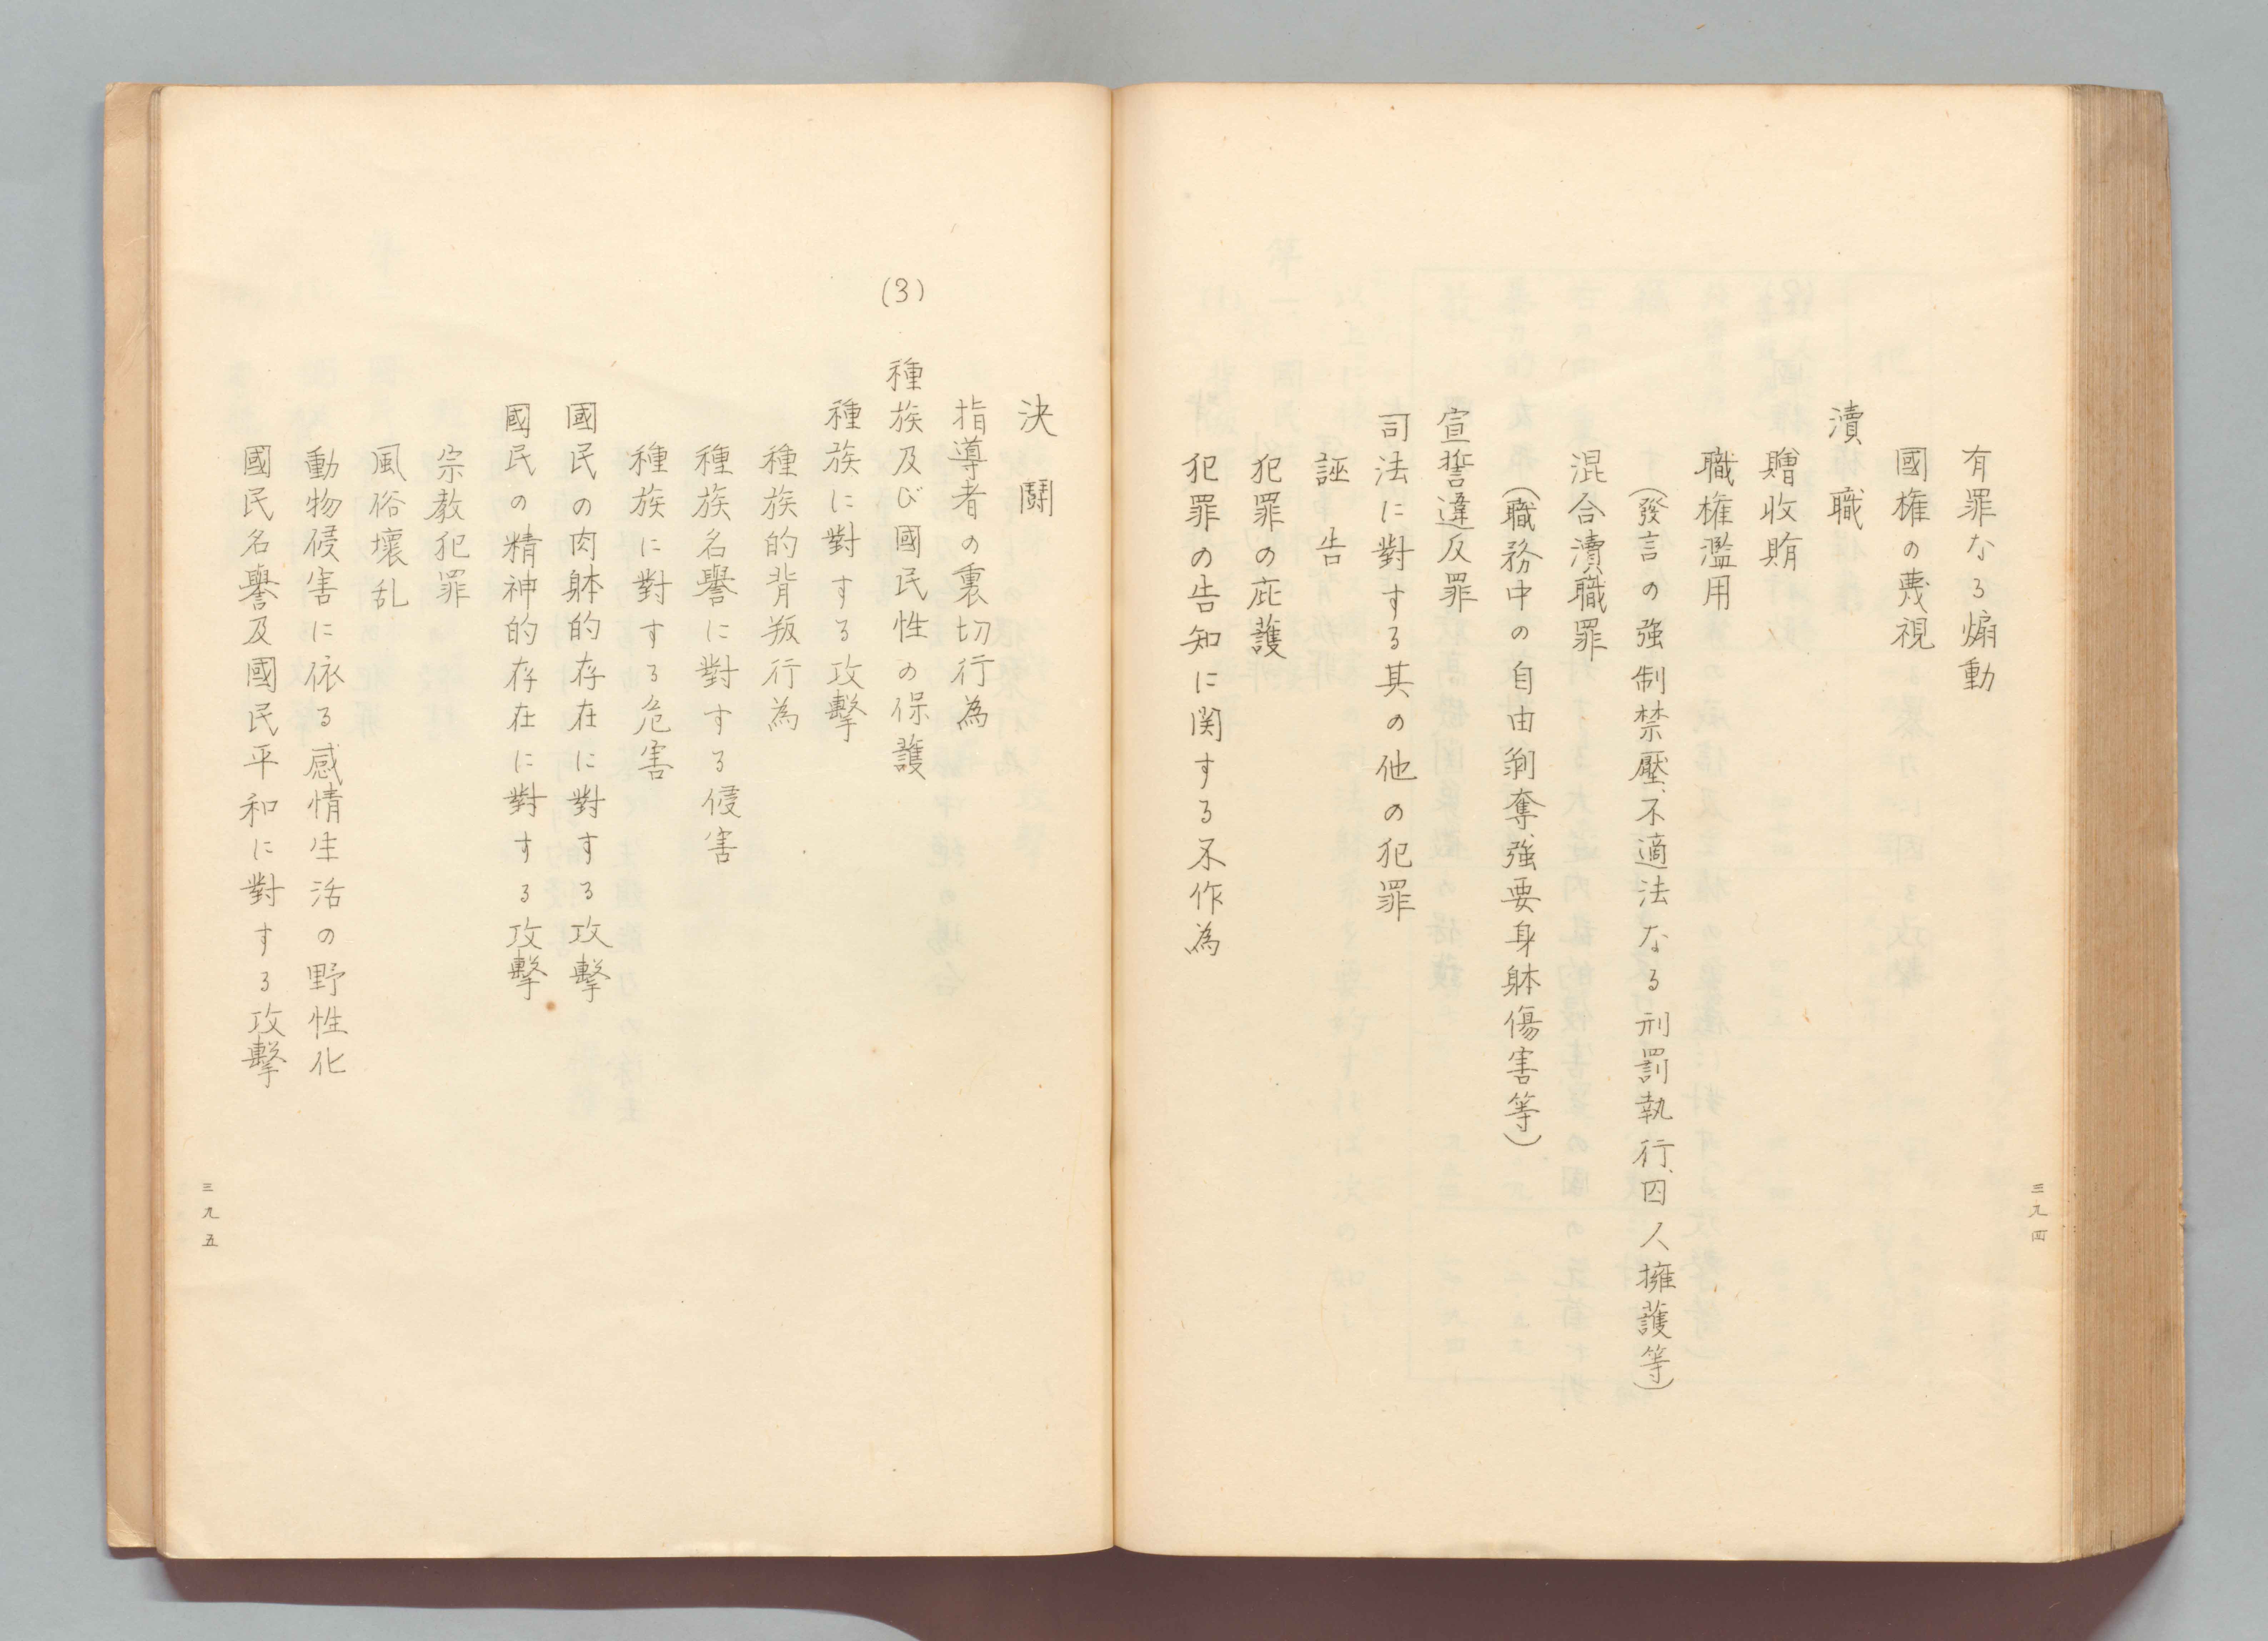 有罪なる煽動
國権の蔑視
瀆職
贈收賄
職権濫用
(發言の強制禁壓、不適法なる刑罰執行、囚人擁護等)
混合瀆職罪
(職務中の自由剥奪、強要身躰傷害等)
宣誓違反罪
司法に對する其の他の犯罪
誣告
犯罪の庇護
犯罪の告知に関する不作為
三九四
決鬪
指導者の裏切行為
(3) 種族及び國民性の保護
種族に對する攻擊
種族的背叛行為
種族名譽に對する侵害
種族に對する危害
國民の肉躰的存在に對する攻擊
國民の精神的存在に對する攻擊
宗教犯罪
風俗壞乱
動物侵害に依る感情生活の野性化
國民名譽及國民平和に對する攻擊
三九五